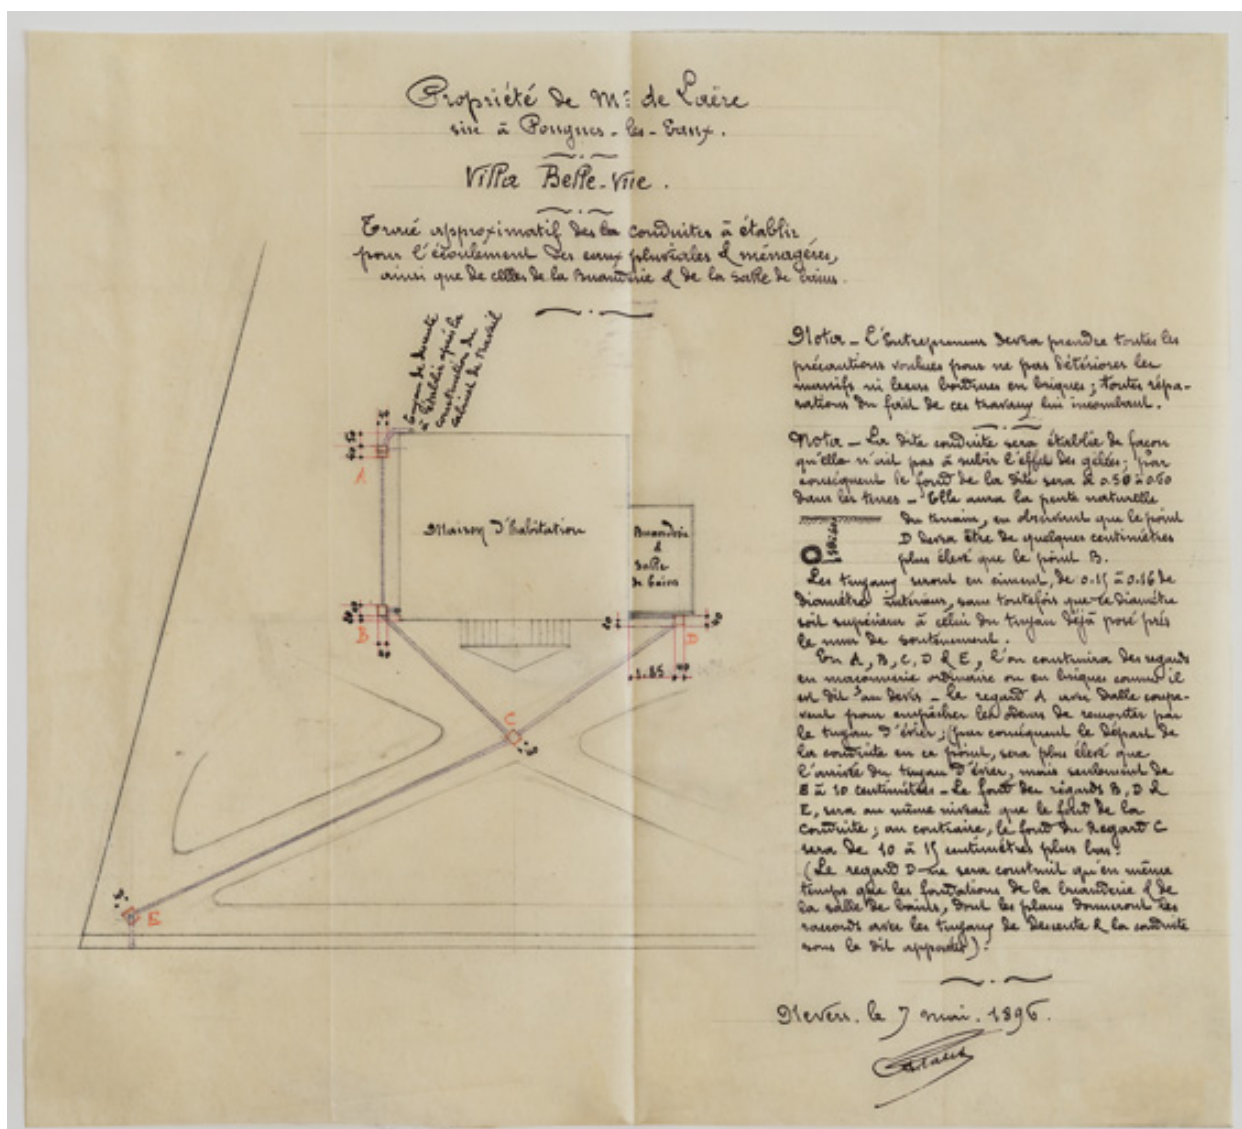 Propriété de Mr de Laëre
sise à Pougues-les-Eaux.
Villa Belle-Vue.
Tracé approximatif des conduites à établir
pour l'écoulement des eaux pluviales & ménagères,
ainsi que de celles de la Buanderie & de la Salle de bains.
Tuyau de descente
à établir après la
construction du
cabinet de travail
A
Maison d'habitation
Buanderie
&
Salle
de bains
B
D
1.85
C
E
Nota - L'Entrepreneur devra prendre toutes les
précautions voulues pour ne pas détériorer les
massifs ni leurs bordures en briques; toutes répa-
rations du fait de ces travaux lui incombant.
Nota - La dite conduite sera établie de façon
qu'elle n'ait pas à subir l'effet des gelées; par
conséquent le fond de la dite sera à 0.50 à 0.60
dans les terres - Elle aura la pente naturelle
du terrain, en observant que le point
D devra être de quelques centimètres
plus élevé que le point B.
Les tuyaux seront en ciment, de 0.15 à 0.16 de
diamètre intérieur, sans toutefois que le diamètre
soit supérieur à celui du tuyau déjà posé près
le mur de soutènement.
En A, B, C, D & E, l'on construira des regards
en maçonnerie ordinaire ou en briques comme il
est dit au devis - Le regard A avec dalle coupe-
vent pour empêcher les odeurs de remonter par
le tuyau d'évier; (par conséquent le départ de
la conduite en ce point, sera plus élevé que
l'arrivée du tuyau d'évier, mais seulement de
8 à 10 centimètres - Le fond des regards B, D &
E, sera au même niveau que le fond de la
conduite; au contraire, le fond du Regard C
sera de 10 à 15 centimètres plus bas.
(Le regard D ne sera construit qu'en même
temps que les fondations de la buanderie & de
la salle de bains, dont les plans donneront les
raccords avec les tuyaux de descente & la conduite
sous le dit
Nevers. le 7 mai. 1896.